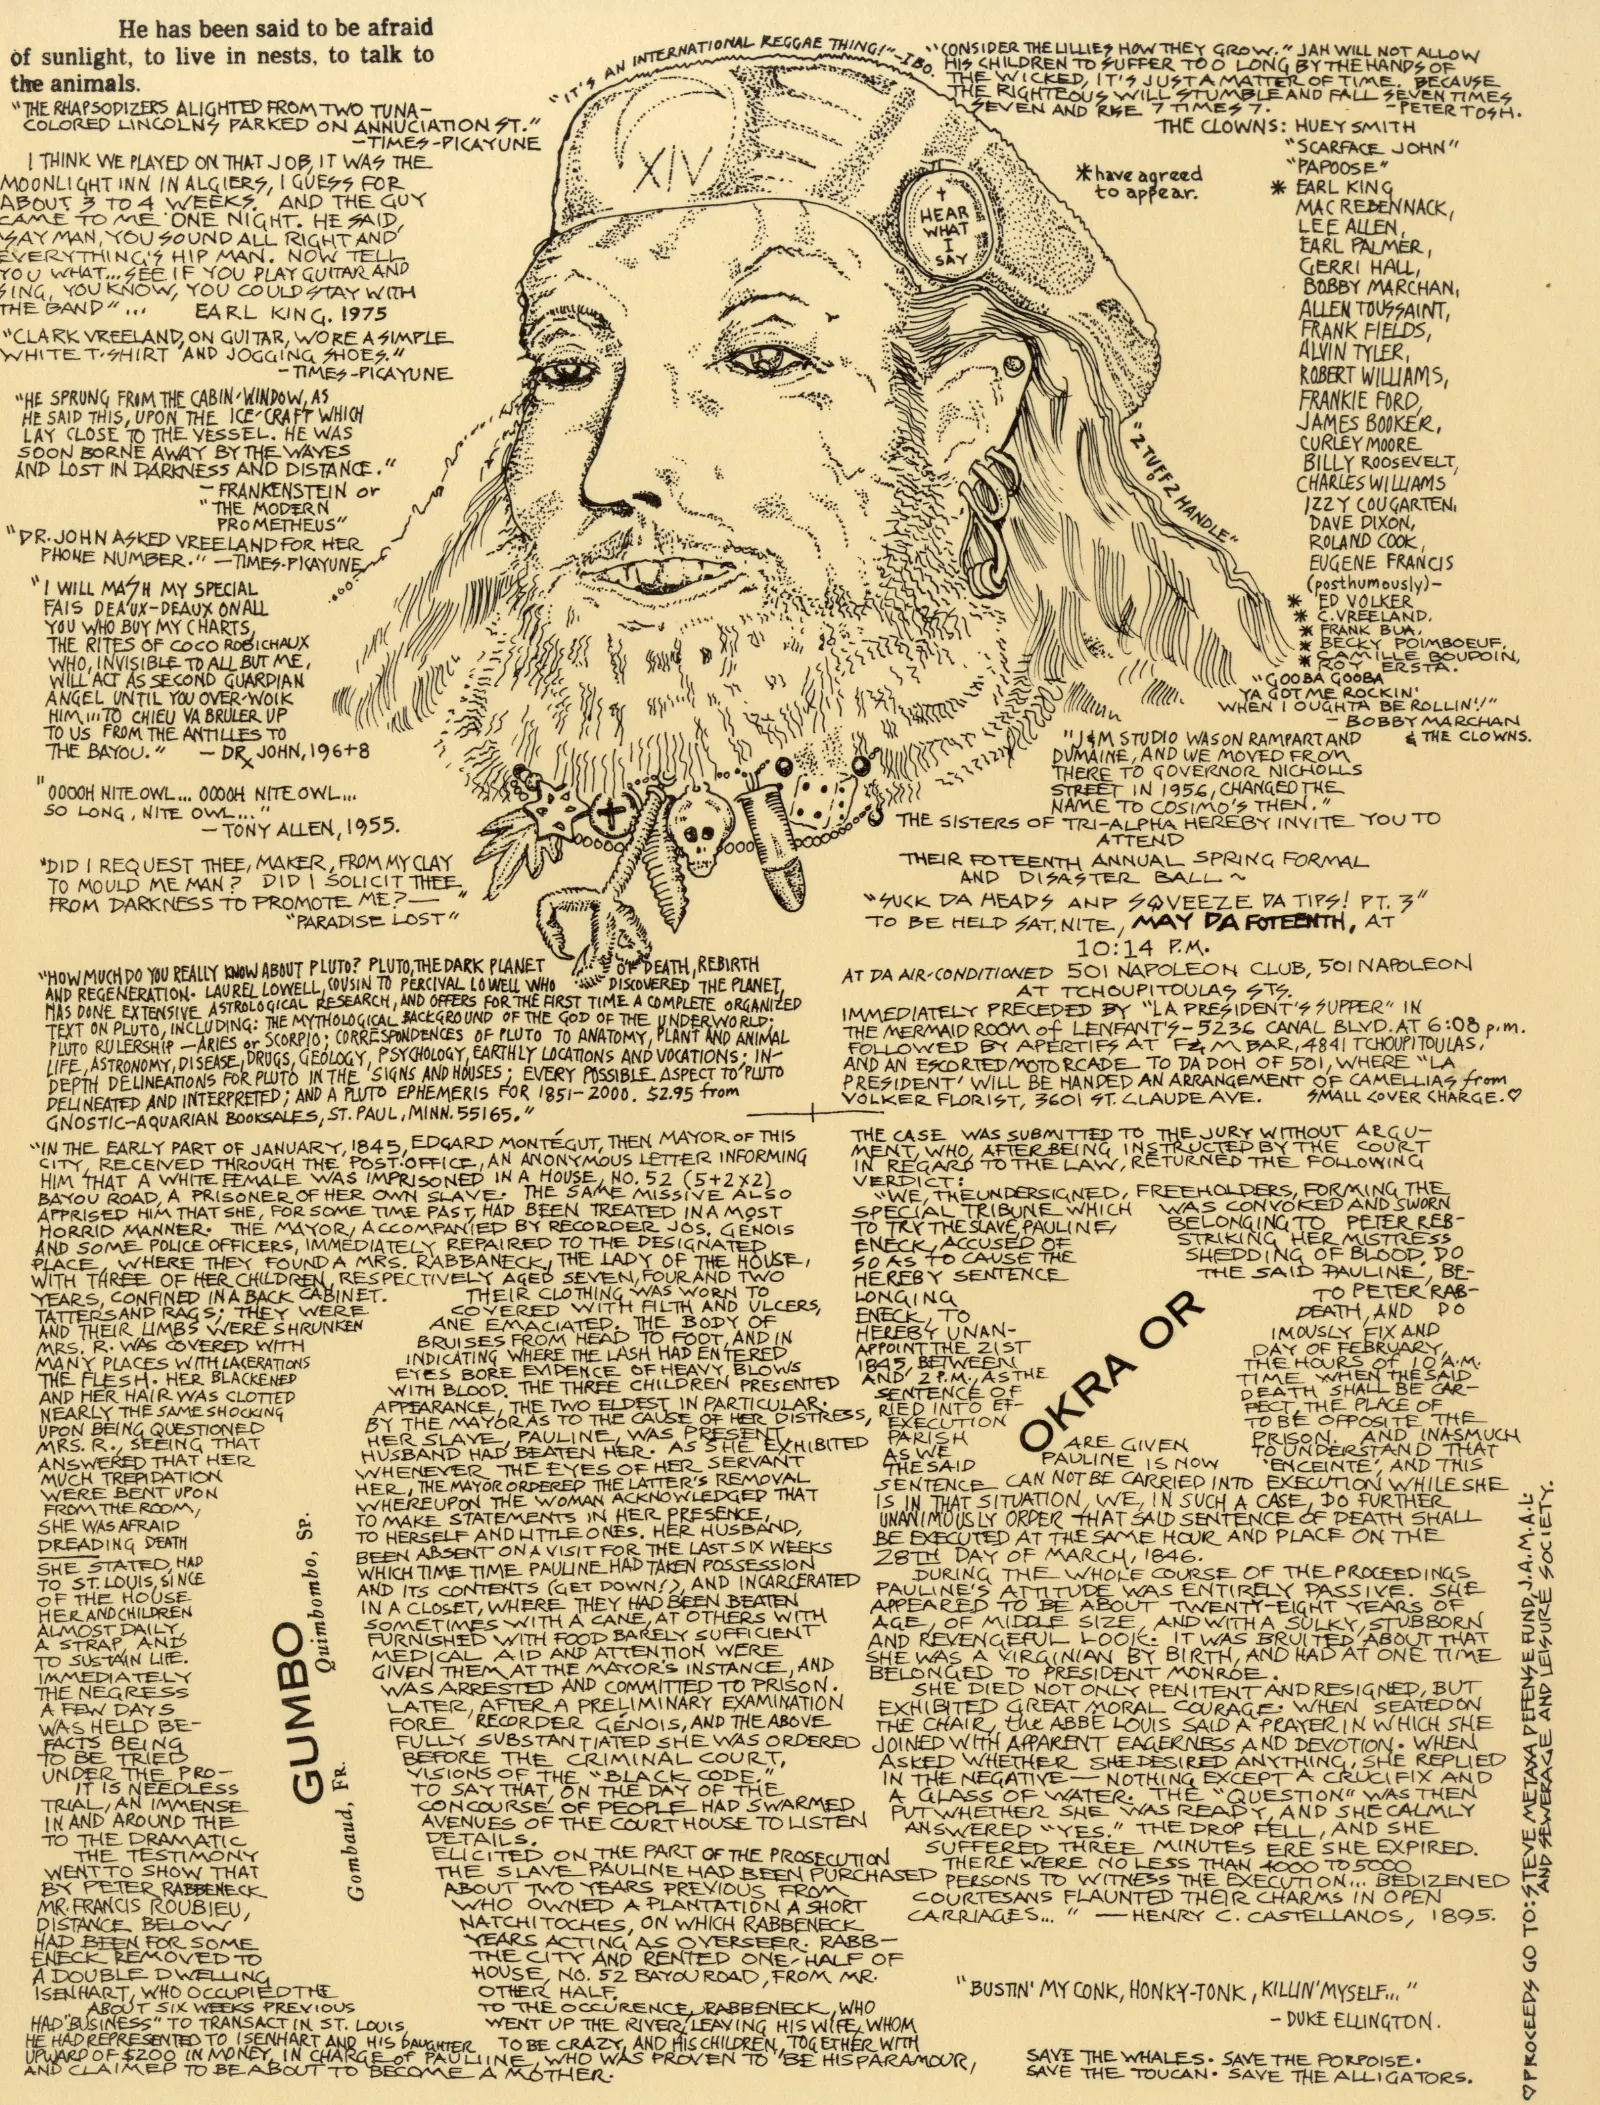 He has been said to be afraid
of sunlight, to live in nests, to talk to
the animals.
"THE RHAPSODIZERS ALIGHTED FROM TWO TUNA-
COLORED LINCOLNS PARKED ON ANNUCIATION ST."
-TIMES-PICAYUNE
I THINK WE PLAYED ON THAT JOB, IT WAS THE
MOONLIGHT INN IN ALGIERS, I GUESS FOR
ABOUT 3 TO 4 WEEKS. AND THE GUY
CAME TO ME ONE NIGHT. HE SAID,
SAY MAN, YOU SOUND ALL RIGHT AND
EVERYTHING'S HIP MAN. NOW TELL
YOU WHAT... SEE IF YOU PLAY GUITAR AND
SING, YOU KNOW, YOU COULD STAY WITH
THE BAND" ... EARL KING. 1975
"CLARK VREELAND, ON GUITAR, WORE A SIMPLE
WHITE T-SHIRT AND JOGGING SHOES."
-TIMES-PICAYUNE
"HE SPRUNG FROM THE CABIN-WINDOW, AS
HE SAID THIS, UPON THE ICE-CRAFT WHICH
LAY CLOSE TO THE VESSEL. HE WAS
SOON BORNE AWAY BY THE WAVES
AND LOST IN DARKNESS AND DISTANCE."
- FRANKENSTEIN or
"THE MODERN
PROMETHEUS"
"DR. JOHN ASKED VREELAND FOR HER
PHONE NUMBER." -TIMES-PICAYUNE
"I WILL MASH MY SPECIAL
FAIS DEAUX-DEAUX ON ALL
YOU WHO BUY MY CHARTS,
THE RITES OF COCO ROBICHAUX
WHO, INVISIBLE TO ALL BUT ME,
WILL ACT AS SECOND GUARDIAN
ANGEL UNTIL YOU OVER-WOIK
HIM... TO CHIEU VA BRULER UP
TO US FROM THE ANTILLES TO
THE BAYOU." - DR. JOHN, 196+8
"OOOOH NITE OWL... OOOOH NITE OWL...
SO LONG, NITE OWL..."
- TONY ALLEN, 1955.
"DID I REQUEST THEE, MAKER, FROM MY CLAY
TO MOULD ME MAN? DID I SOLICIT THEE
FROM DARKNESS TO PROMOTE ME?— "
"PARADISE LOST"
"IT'S AN INTERNATIONAL REGGAE THING!" -IBO.
XIV
HEAR
WHAT
I
SAY
"2 TUFF 2 HANDLE"
"CONSIDER THE LILLIES HOW THEY GROW." JAH WILL NOT ALLOW
HIS CHILDREN TO SUFFER TOO LONG BY THE HANDS OF
THE WICKED, IT'S JUST A MATTER OF TIME. BECAUSE
THE RIGHTEOUS WILL STUMBLE AND FALL SEVEN TIMES
SEVEN AND RISE 7 TIMES 7. -PETER TOSH.
THE CLOWNS: HUEY SMITH
"SCARFACE JOHN"
"PAPOOSE"
*have agreed
to appear.
* EARL KING
MAC REBENNACK,
LEE ALLEN,
EARL PALMER,
GERRI HALL,
BOBBY MARCHAN,
ALLEN TOUSSAINT,
FRANK FIELDS,
ALVIN TYLER,
ROBERT WILLIAMS,
FRANKIE FORD,
JAMES BOOKER,
CURLEY MOORE
BILLY ROOSEVELT,
CHARLES WILLIAMS
IZZY COUGARTEN,
DAVE DIXON,
ROLAND COOK,
EUGENE FRANCIS
(posthumously)-
* ED VOLKER
* C. VREELAND.
* FRANK BUA.
* BECKY POIMBOEUF.
* CAMILLE BOUPOIN,
* ROY ERSTA.
"GOOBA GOOBA
YA GOT ME ROCKIN'
WHEN I OUGHTA BE ROLLIN'!"
- BOBBY MARCHAN
& THE CLOWNS.
"J&M STUDIO WAS ON RAMPART AND
DUMAINE, AND WE MOVED FROM
THERE TO GOVERNOR NICHOLLS
STREET IN 1956, CHANGED THE
NAME TO COSIMO'S THEN."
THE SISTERS OF TRI-ALPHA HEREBY INVITE YOU TO
ATTEND
THEIR FOTEENTH ANNUAL SPRING FORMAL
AND DISASTER BALL ~
"SUCK DA HEADS AND SQVEEZE DA TIPS! PT. 3"
TO BE HELD SAT. NITE, MAY DA FOTEENTH, AT
10:14 P.M.
AT DA AIR-CONDITIONED 501 NAPOLEON CLUB, 501 NAPOLEON
AT TCHOUPITOULAS STS.
IMMEDIATELY PRECEDED BY "LA PRESIDENT'S SUPPER" IN
THE MERMAID ROOM of LENFANT'S-5236 CANAL BLVD. AT 6:08 p.m.
FOLLOWED BY APERTIFS AT F&M BAR, 4841 TCHOUPITOULAS,
AND AN ESCORTED MOTORCADE TO DA DOH OF 501, WHERE "LA
PRESIDENT' WILL BE HANDED AN ARRANGEMENT OF CAMELLIAS from
VOLKER FLORIST, 3601 ST. CLAUDE AVE. SMALL COVER CHARGE.♡
"HOW MUCH DO YOU REALLY KNOW ABOUT PLUTO? PLUTO, THE DARK PLANET OF DEATH, REBIRTH
AND REGENERATION. LAUREL LOWELL, COUSIN TO PERCIVAL LOWELL WHO DISCOVERED THE PLANET,
HAS DONE EXTENSIVE ASTROLOGICAL RESEARCH, AND OFFERS FOR THE FIRST TIME A COMPLETE ORGANIZED
TEXT ON PLUTO, INCLUDING: THE MYTHOLOGICAL BACKGROUND OF THE GOD OF THE UNDERWORLD;
PLUTO RULERSHIP -ARIES or SCORPIO; CORRESPONDENCES OF PLUTO TO ANATOMY, PLANT AND ANIMAL
LIFE, ASTRONOMY, DISEASE, DRUGS, GEOLOGY, PSYCHOLOGY, EARTHLY LOCATIONS AND VOCATIONS; IN-
DEPTH DELINEATIONS FOR PLUTO IN THE SIGNS AND HOUSES; EVERY POSSIBLE ASPECT TO PLUTO
DELINEATED AND INTERPRETED; AND A PLUTO EPHEMERIS FOR 1851-2000. $2.95 from
GNOSTIC-AQUARIAN BOOKSALES, ST. PAUL, MINN. 55165."
"IN THE EARLY PART OF JANUARY, 1845, EDGARD MONTÉGUT, THEN MAYOR OF THIS
CITY, RECEIVED THROUGH THE POST-OFFICE, AN ANONYMOUS LETTER INFORMING
HIM THAT A WHITE FEMALE WAS IMPRISONED IN A HOUSE, NO. 52 (5+2x2)
BAYOU ROAD, A PRISONER OF HER OWN SLAVE. THE SAME MISSIVE ALSO
APPRISED HIM THAT SHE, FOR SOME TIME PAST, HAD BEEN TREATED IN A MOST
HORRID MANNER. THE MAYOR, ACCOMPANIED BY RECORDER JOS. GENOIS
AND SOME POLICE OFFICERS, IMMEDIATELY REPAIRED TO THE DESIGNATED
PLACE, WHERE THEY FOUND A MRS. RABBANECK, THE LADY OF THE HOUSE,
WITH THREE OF HER CHILDREN, RESPECTIVELY AGED SEVEN, FOUR AND TWO
YEARS, CONFINED IN A BACK CABINET. THEIR CLOTHING WAS WORN TO
TATTERS AND RAGS; THEY WERE COVERED WITH FILTH AND ULCERS,
AND THEIR LIMBS WERE SHRUNKEN ANE EMACIATED. THE BODY OF
MRS. R. WAS COVERED WITH BRUISES FROM HEAD TO FOOT, AND IN
MANY PLACES WITH LACERATIONS INDICATING WHERE THE LASH HAD ENTERED
THE FLESH. HER BLACKENED EYES BORE EVIDENCE OF HEAVY BLOWS
AND HER HAIR WAS CLOTTED WITH BLOOD. THE THREE CHILDREN PRESENTED
NEARLY THE SAME SHOCKING APPEARANCE, THE TWO ELDEST IN PARTICULAR.
UPON BEING QUESTIONED BY THE MAYOR AS TO THE CAUSE OF HER DISTRESS,
MRS. R., SEEING THAT HER SLAVE, PAULINE, WAS PRESENT,
ANSWERED THAT HER HUSBAND HAD BEATEN HER. AS SHE EXHIBITED
MUCH TREPIDATION WHENEVER THE EYES OF HER SERVANT
WERE BENT UPON HER, THE MAYOR ORDERED THE LATTER'S REMOVAL
FROM THE ROOM, WHEREUPON THE WOMAN ACKNOWLEDGED THAT
SHE WAS AFRAID TO MAKE STATEMENTS IN HER PRESENCE,
DREADING DEATH TO HERSELF AND LITTLE ONES. HER HUSBAND,
SHE STATED, HAD BEEN ABSENT ON A VISIT FOR THE LAST SIX WEEKS
TO ST. LOUIS, SINCE WHICH TIME TIME PAULINE HAD TAKEN POSSESSION
OF THE HOUSE AND ITS CONTENTS (GET DOWN!), AND INCARCERATED
HER AND CHILDREN IN A CLOSET, WHERE THEY HAD BEEN BEATEN
ALMOST DAILY, SOMETIMES WITH A CANE, AT OTHERS WITH
A STRAP, AND FURNISHED WITH FOOD BARELY SUFFICIENT
TO SUSTAIN LIFE. MEDICAL AID AND ATTENTION WERE
IMMEDIATELY GIVEN THEM AT THE MAYOR'S INSTANCE, AND
THE NEGRESS WAS ARRESTED AND COMMITTED TO PRISON.
A FEW DAYS LATER, AFTER A PRELIMINARY EXAMINATION
WAS HELD BE- FORE RECORDER GÉNOIS, AND THE ABOVE
FACTS BEING FULLY SUBSTANTIATED SHE WAS ORDERED
TO BE TRIED BEFORE THE CRIMINAL COURT,
UNDER THE PRO- VISIONS OF THE "BLACK CODE."
IT IS NEEDLESS TO SAY THAT, ON THE DAY OF THE
TRIAL, AN IMMENSE CONCOURSE OF PEOPLE HAD SWARMED
IN AND AROUND THE AVENUES OF THE COURT HOUSE TO LISTEN
TO THE DRAMATIC DETAILS.
THE TESTIMONY ELICITED ON THE PART OF THE PROSECUTION
WENT TO SHOW THAT THE SLAVE PAULINE HAD BEEN PURCHASED
BY PETER RABBENECK ABOUT TWO YEARS PREVIOUS FROM
MR. FRANCIS ROUBIEU, WHO OWNED A PLANTATION A SHORT
DISTANCE BELOW NATCHITOCHES, ON WHICH RABBENECK
HAD BEEN FOR SOME YEARS ACTING AS OVERSEER. RABB-
ENECK REMOVED TO THE CITY AND RENTED ONE-HALF OF
A DOUBLE DWELLING HOUSE, NO. 52 BAYOU ROAD, FROM MR.
ISENHART, WHO OCCUPIED THE OTHER HALF.
ABOUT SIX WEEKS PREVIOUS TO THE OCCURENCE, RABBENECK, WHO
HAD "BUSINESS" TO TRANSACT IN ST. LOUIS, WENT UP THE RIVER, LEAVING HIS WIFE, WHOM
HE HAD REPRESENTED TO ISENHART AND HIS DAUGHTER TO BE CRAZY, AND HIS CHILDREN, TOGETHER WITH
UPWARD OF $200 IN MONEY, IN CHARGE of PAULIINE, WHO WAS PROVEN TO BE HIS PARAMOUR,
AND CLAIMED TO BE ABOUT TO BECOME A MOTHER.
GUMBO
Quimbombo, Sp.
Gombaud, Fr.
THE CASE WAS SUBMITTED TO THE JURY WITHOUT ARGU-
MENT, WHO, AFTER BEING INSTRUCTED BY THE COURT
IN REGARD TO THE LAW, RETURNED THE FOLLOWING
VERDICT:
"WE, THE UNDERSIGNED, FREEHOLDERS, FORMING THE
SPECIAL TRIBUNE WHICH WAS CONVOKED AND SWORN
TO TRY THE SLAVE PAULINE, BELONGING TO PETER REB-
ENECK, ACCUSED OF STRIKING HER MISTRESS
SO AS TO CAUSE THE SHEDDING OF BLOOD, DO
HEREBY SENTENCE THE SAID PAULINE, BE-
LONGING TO PETER RAB-
ENECK, TO DEATH, AND DO
HEREBY UNAN- IMOUSLY FIX AND
APPOINT THE 21ST DAY OF FEBRUARY,
1845, BETWEEN THE HOURS OF 10 A.M.
AND 2 P.M., AS THE TIME WHEN THE SAID
SENTENCE OF DEATH SHALL BE CAR-
RIED INTO EF- FECT, THE PLACE OF
EXECUTION TO BE OPPOSITE THE
PARISH PRISON. AND INASMUCH
AS WE ARE GIVEN TO UNDERSTAND THAT
THE SAID PAULINE IS NOW 'ENCEINTE', AND THIS
SENTENCE CAN NOT BE CARRIED INTO EXECUTION WHILE SHE
IS IN THAT SITUATION, WE, IN SUCH A CASE, DO FURTHER
UNANIMOUSLY ORDER THAT SAID SENTENCE OF DEATH SHALL
BE EXECUTED AT THE SAME HOUR AND PLACE ON THE
28TH DAY OF MARCH, 1846.
DURING THE WHOLE COURSE OF THE PROCEEDINGS
PAULINE'S ATTITUDE WAS ENTIRELY PASSIVE. SHE
APPEARED TO BE ABOUT TWENTY-EIGHT YEARS OF
AGE, OF MIDDLE SIZE, AND WITH A SULKY, STUBBORN
AND REVENGEFUL LOOK. IT WAS BRUITED ABOUT THAT
SHE WAS A VIRGINIAN BY BIRTH, AND HAD AT ONE TIME
BELONGED TO PRESIDENT MONROE.
SHE DIED NOT ONLY PENITENT AND RESIGNED, BUT
EXHIBITED GREAT MORAL COURAGE. WHEN SEATED ON
THE CHAIR, the ABBE LOUIS SAID A PRAYER IN WHICH SHE
JOINED WITH APPARENT EAGERNESS AND DEVOTION. WHEN
ASKED WHETHER SHE DESIRED ANYTHING, SHE REPLIED
IN THE NEGATIVE — NOTHING EXCEPT A CRUCIFIX AND
A GLASS OF WATER. THE "QUESTION" WAS THEN
PUT WHETHER SHE WAS READY, AND SHE CALMLY
ANSWERED "YES." THE DROP FELL, AND SHE
SUFFERED THREE MINUTES ERE SHE EXPIRED.
THERE WERE NO LESS THAN 4000 TO 5000
PERSONS TO WITNESS THE EXECUTION... BEDIZENED
COURTESANS FLAUNTED THEIR CHARMS IN OPEN
CARRIAGES..." — HENRY C. CASTELLANOS, 1895.
OKRA OR
"BUSTIN' MY CONK, HONKY-TONK, KILLIN' MYSELF..."
- DUKE ELLINGTON.
SAVE THE WHALES. SAVE THE PORPOISE.
SAVE THE TOUCAN. SAVE THE ALLIGATORS.
♡PROCEEDS GO TO: STEVE METAXA DEFENSE FUND, J.A.M.A.L.
AND SEWERAGE AND LEISURE SOCIETY.